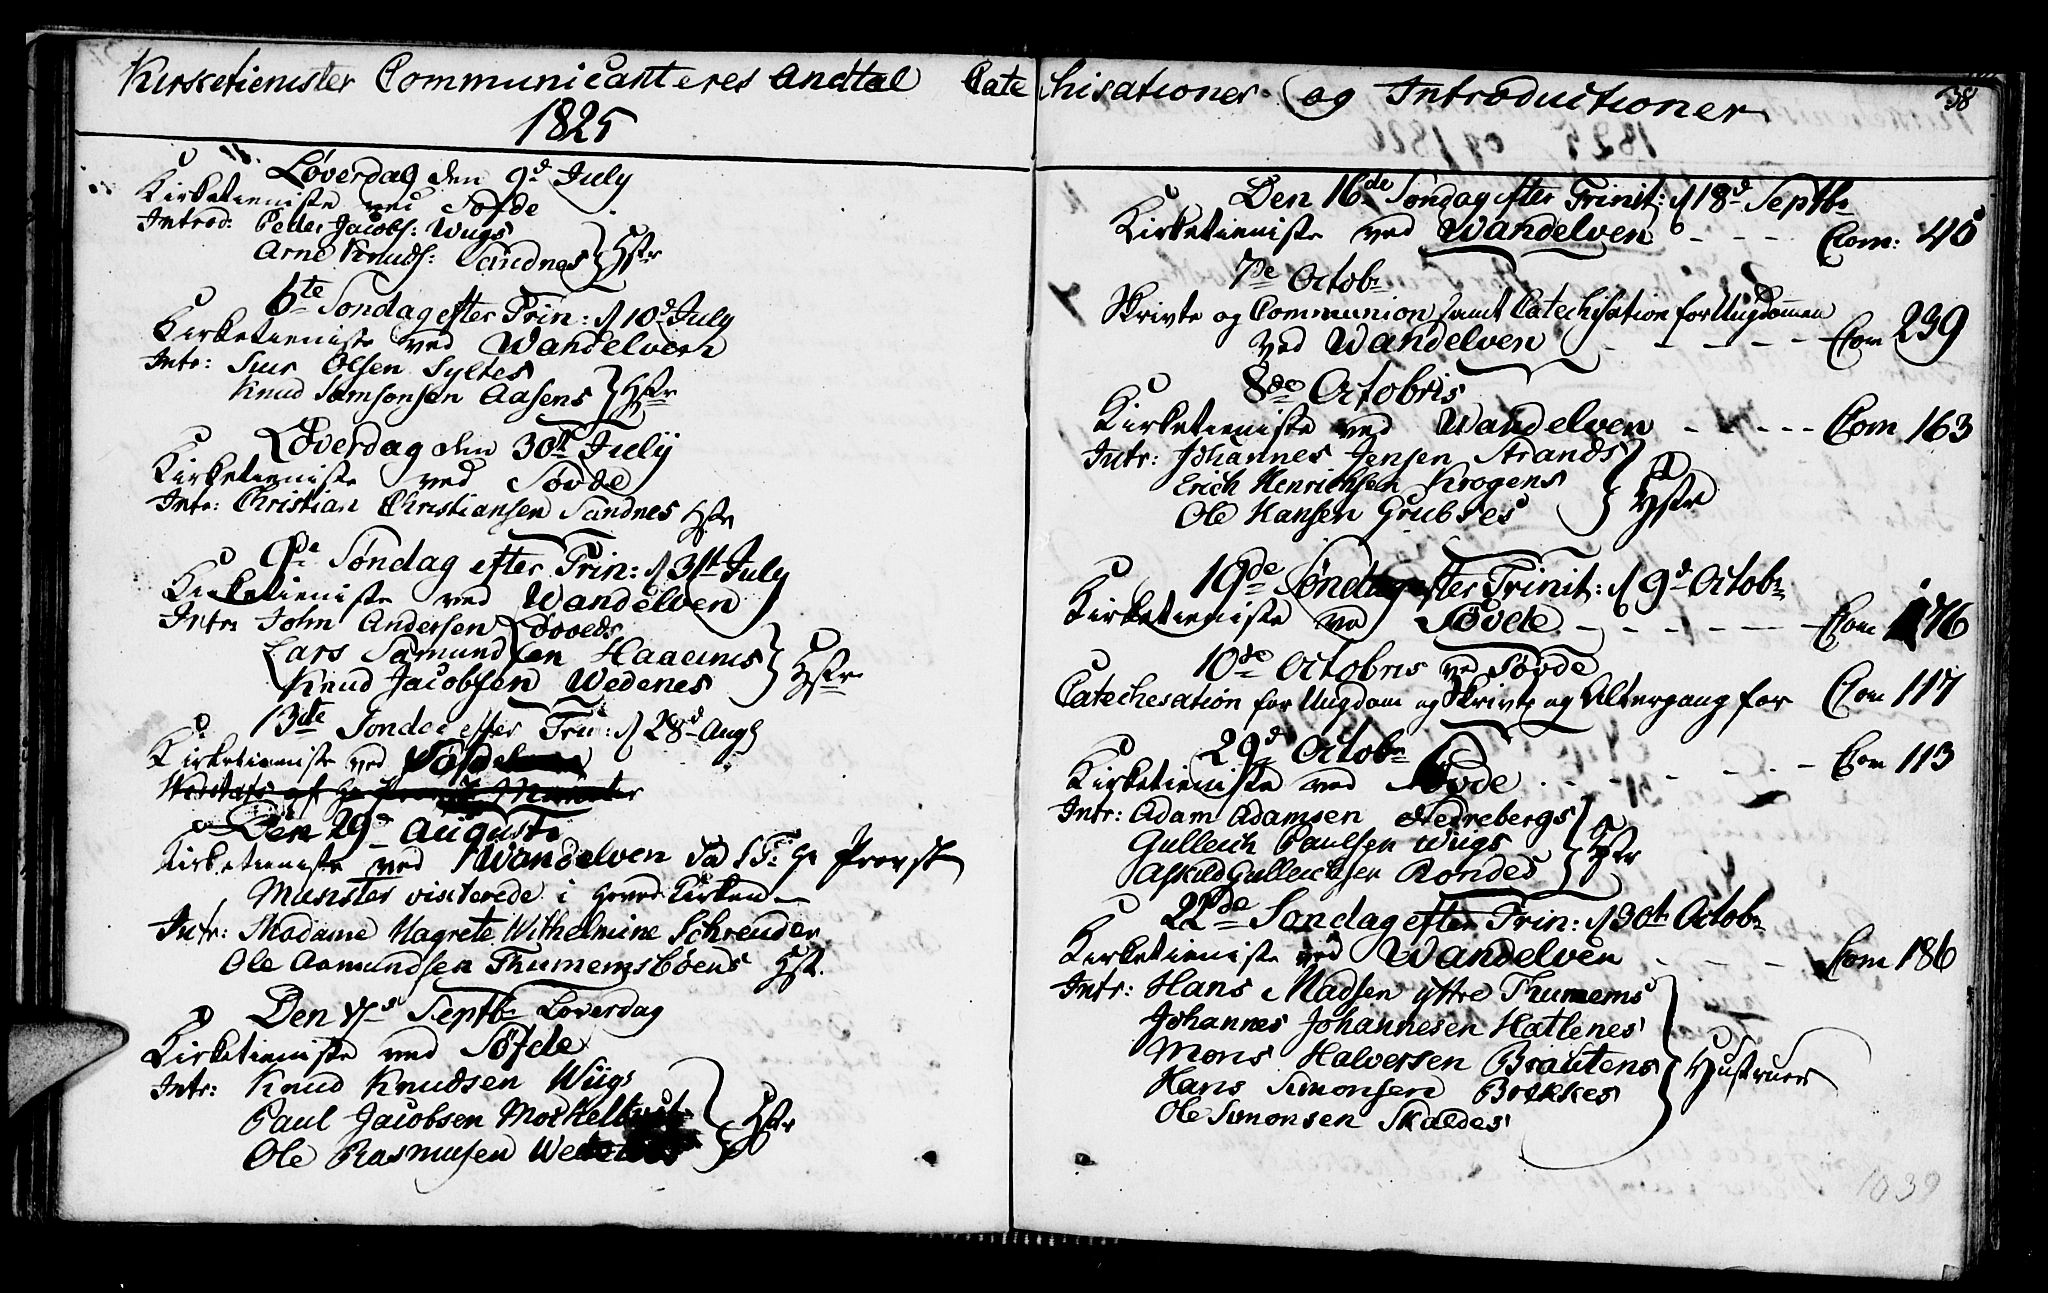 Kirketienister Communicanteres Andtal Catechisationer og Introductioner
1825
38
Løverdag den 9d July
Kirketieniste ved Søfde
Introd: Peder Jacobs: Wugs
Arne Knuds: Sandnes Hstr
6te Søndag efter Trin: d 10d July
Kirketieniste ved Wandelven
Intr: Siur Olsen Syltes
Knud Samsonsen Aasens Hstr
Løverdag den 30te July
Kirketieniste ved Søvde
Intr: Christian Christiansen Sandnes Hstr
9de Søndag efter Trin: d 31te July
Kirketieniste ved Wandelven
Intr: John Andersen
Lars Samundsen
Knud Jacobsen Wedenes Hstr
13de Søndag efter Trin: d 28d Aug
Kirketieniste ved Søfde
Den 29d Augusti
Kirketieniste ved Wandelven da S T: Hr Provst
Munster visiterede i Hoved Kirken
Intr: Madame Magrete Wilhelmine Schreuder
Ole Aamundsen Thumemsbøens Hst.
Den 17d Septbr Løverdag
Kirketieniste ved Søfde
Intr: Knud Knudsen Wiigs
Paul Jacobsen
Ole Rasmusen Hstr
Den 16de Søndag efter Trinit: d 18d Septbr
Kirketieniste ved Wandelven - - - Com: 40
7de Octobr
Skrivte og Communion samt Catechisation for Ungdommen
ved Wandelven - - - - - Com 239
8de Octobris
Kirketieniste ved Wandelven - - - - Com 163
Intr: Johannes Jensen Strands
Erich Henrichsen Krogens
Ole Hansen Grubses Hstr
19de Søndag efter Trinit: d 9d Octobr
Kirketieniste ved Søvde - - - - - - Com 176
10de Octobris ved Søvde
Catechesation for Ungdom og Skrivte og Altergang for Com 117
29d Octobr
Kirketieniste ved Søvde - - - - - Com 113
Intr: Adam Adamsen Nedrebergs
Gulleich Paulsen Wiigs
Askild Gulleichsen Rondes Hstr
22de Søndag efter Trin: d 30te Octobr
Kirketieniste ved Wandelven - - - - Com 186
Intr: Hans Madsen yttre Thumems
Johannes Johannesen Hatlenes
Mons Halversen Brautens
Hans Simonsen Brekkes
Ole Simonsen Skaldes Hustruer
1039